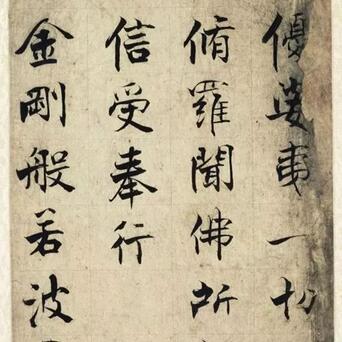 優婆夷一切
脩羅聞佛所
信受奉行
金剛般若波